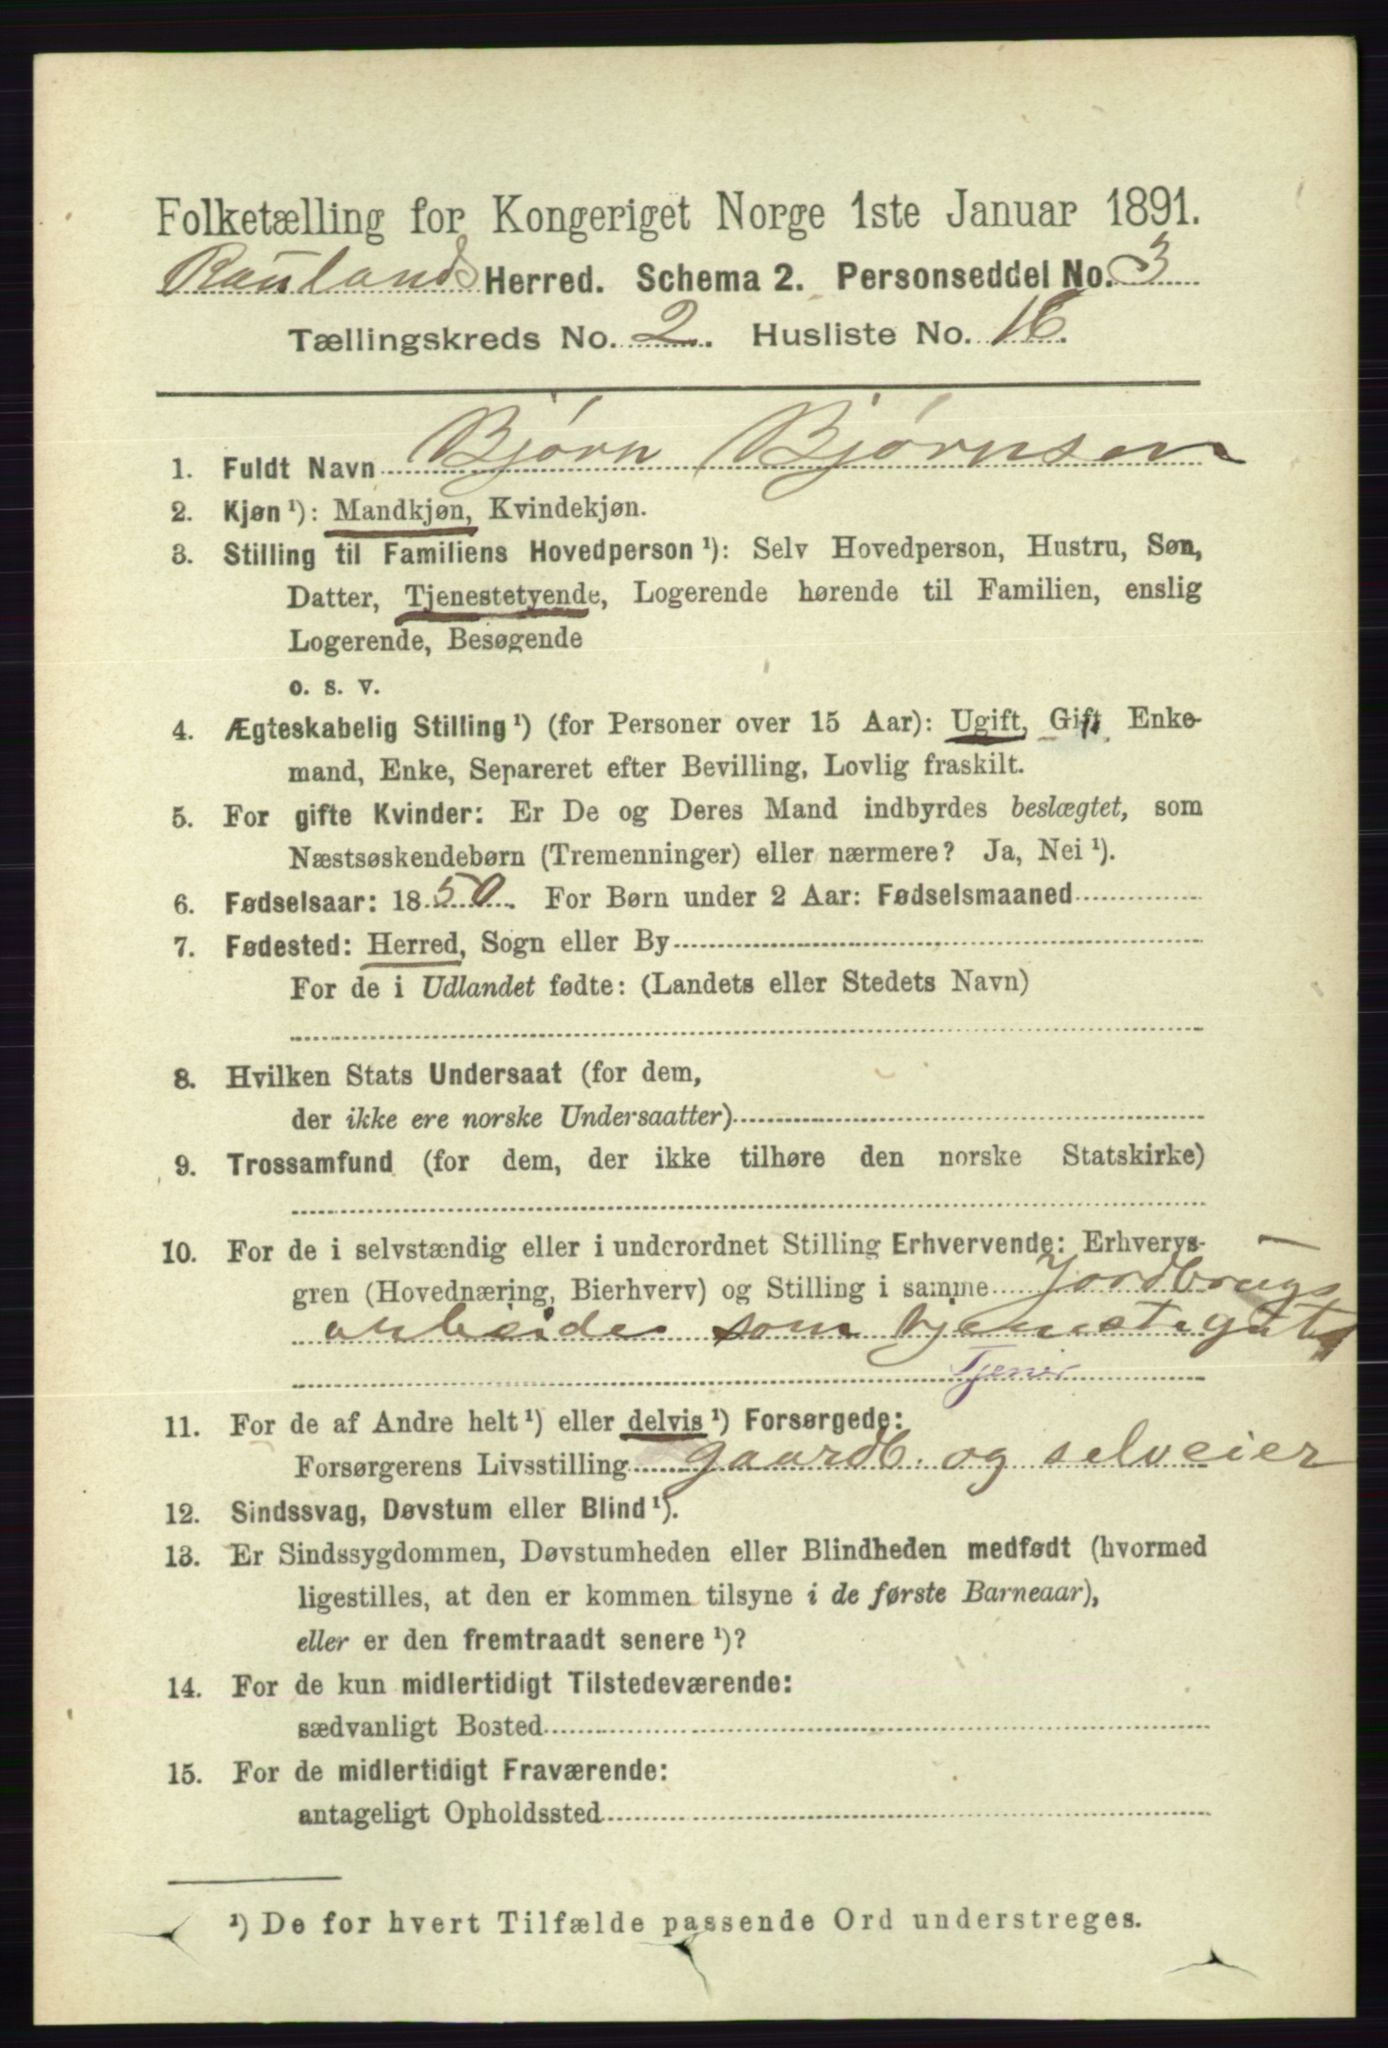 Folketælling for Kongeriget Norge 1ste Januar 1891.
Raulands Herred. Schema 2. Personseddel No. 3
Tællingskreds No. 2. Husliste No. 16.
1. Fuldt Navn Bjørn Bjørnsen
2. Kjøn ¹): Mandkjøn, Kvindekjøn.
3. Stilling til Familiens Hovedperson ¹): Selv Hovedperson, Hustru, Søn,
Datter, Tjenestetyende, Logerende hørende til Familien, enslig
Logerende, Besøgende
o. s. v.
4. Ægteskabelig Stilling ¹) (for Personer over 15 Aar): Ugift, Gift, Enke-
mand, Enke, Separeret efter Bevilling, Lovlig fraskilt.
5. For gifte Kvinder: Er De og Deres Mand indbyrdes beslægtet, som
Næstsøskendebørn (Tremenninger) eller nærmere? Ja, Nei ¹).
6. Fødselsaar: 1850. For Børn under 2 Aar: Fødselsmaaned
7. Fødested: Herred, Sogn eller By
For de i Udlandet fødte: (Landets eller Stedets Navn)
8. Hvilken Stats Undersaat (for dem,
der ikke ere norske Undersaatter)
9. Trossamfund (for dem, der ikke tilhøre den norske Statskirke)
10. For de i selvstændig eller i underordnet Stilling Erhvervende: Erhvervs-
gren (Hovednæring, Bierhverv) og Stilling i samme Jordbrugs
arbeide som tjenestegut
Tjener
11. For de af Andre helt ¹) eller delvis ¹) Forsørgede:
Forsørgerens Livsstilling gaardb. og selveier
12. Sindssvag, Døvstum eller Blind ¹).
13. Er Sindssygdommen, Døvstumheden eller Blindheden medfødt (hvormed
ligestilles, at den er kommen tilsyne i de første Barneaar),
eller er den fremtraadt senere ¹)?
14. For de kun midlertidigt Tilstedeværende:
sædvanligt Bosted
15. For de midlertidigt Fraværende:
antageligt Opholdssted
¹) De for hvert Tilfælde passende Ord understreges.